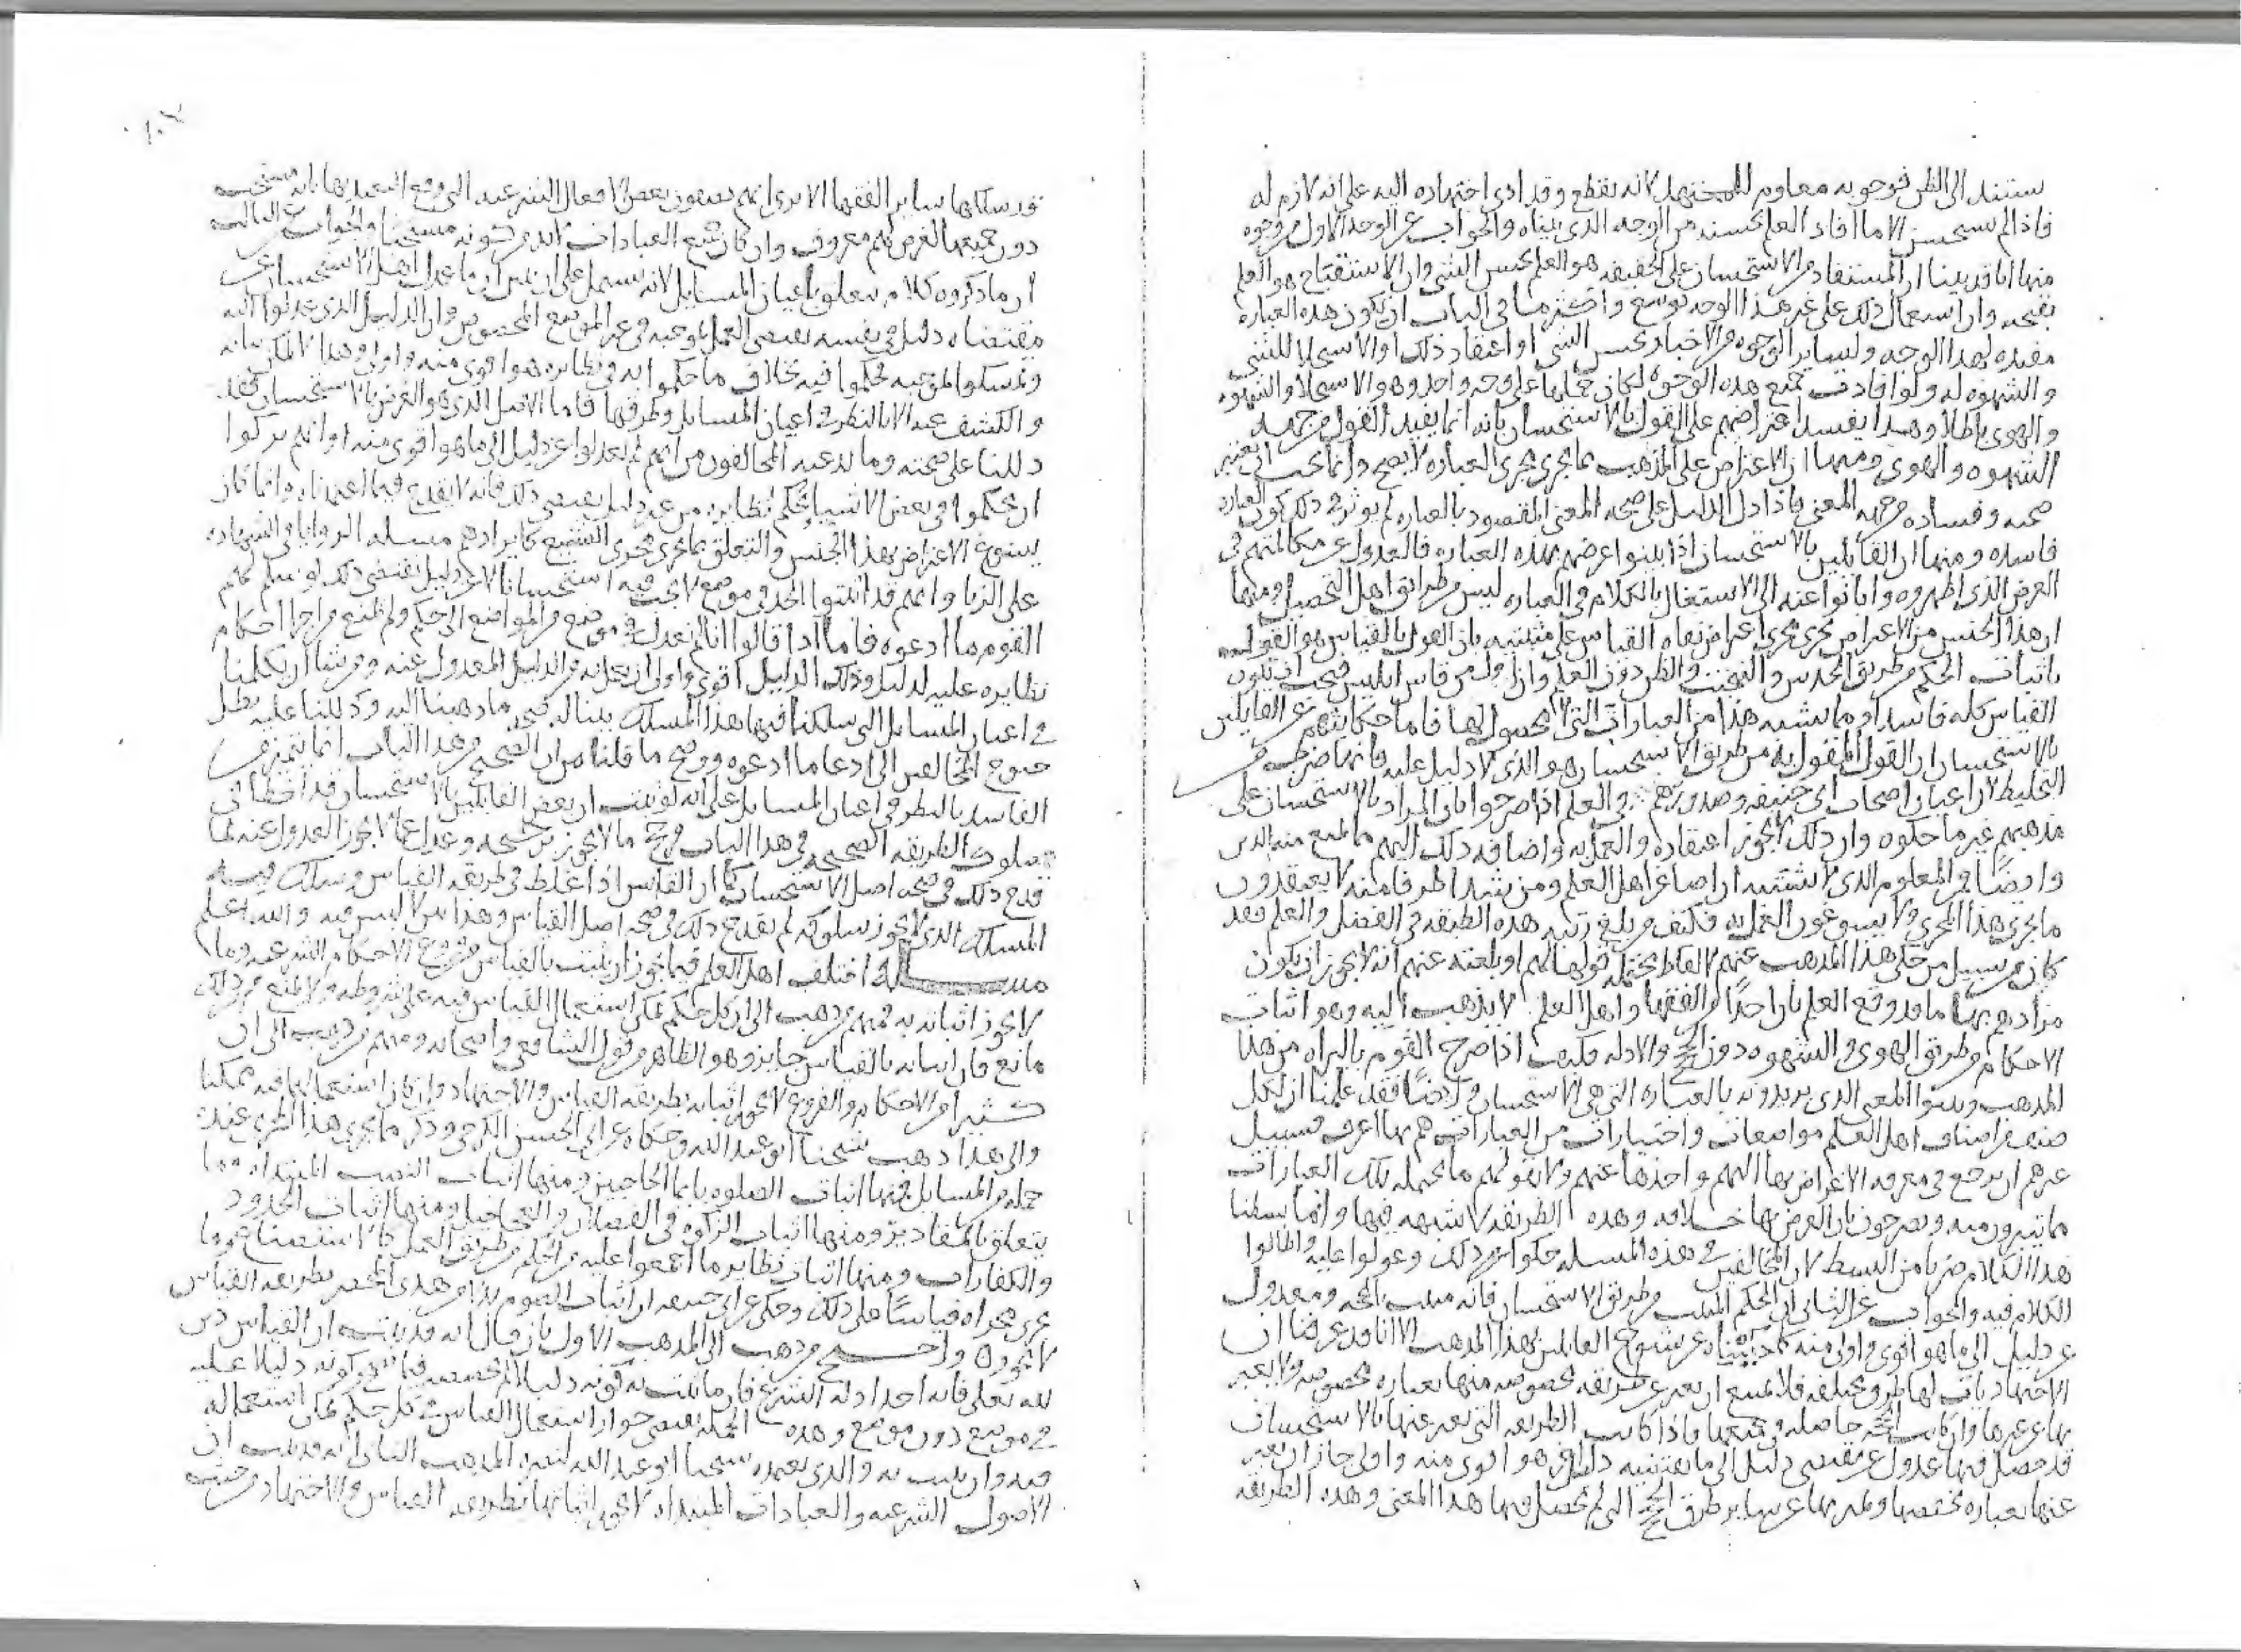 ستند الى الظن فوجوبه معلوم للمجتهد لانه يقطع وقد ادى اجتهاده اليه على انه لازم له
فاذا لم يستحسن الا ما افاد العلم بحسنه من الوجه الذي بيناه والجواب عن الوجه الاول من وجوه
منها انا قد بينا ان المستفاد من الاستحسان على الحقيقه هو العلم بحسن الشي وان الاستقباح هو العلم
بقبحه وان استعمال ذلك على غير هذا الوجه توسع واكثر ما في الباب ان يكون هذه العباره
مفيده لهذا الوجه ولساير الوجوه من الاخبار بحسن الشي او اعتقاد ذلك او الاستحلا للشي
والشهوه له ولو افادت جميع هذه الوجوه لكان حملها على وجه واحد وهو الاستحلا والشهوه
والهوى باطلا وهذا يفسد اعتراضهم على القول بالاستحسان بانه انما يفيد القول من جهه
الشهوه والهوى ومنها ان الاعتراض على المذهب بما يجري مجرى العباره لا يصح وانما يجب ان يعتبر
صحته وفساده من جهه المعنى فاذا دل الدليل على صحه المعنى المقصود بالعباره لم يوثر في ذلك كون العباره
فاسده ومنها ان القائلين بالاستحسان اذا بينوا غرضهم بهذه العباره فالعدول عن مكالمتهم في
الغرض الذي اظهروه وابانوا عنه الى الاشتغال بالكلام في العباره ليس من طرائق اهل التحصيل ومنها
ان هذا الجنس من الاعتراض يجري مجرى اعتراض نفاه القياس على مثبتيه بان القول بالقياس هو القول
باثبات الحكم من طريق الحدس والتبخيت والظن دون العلم وان اول من قاس ابليس فيجب ان يكون
القياس كله فاسدا وما يشبه هذا من العبارات التي لا محصول لها فاما حكايتهم عن القايلين
بالاستحسان ان القول المقول به من طريق الاستحسان هو الذي لا دليل عليه فانها ضرب من
التخليط لان اعيان اصحاب ابي حنيفه وصدورهم في العلم اذا صرحوا بان المراد بالاستحسان على
مذهبهم غير ما حكوه وان ذلك لا يجوز اعتقاده والعمل به واضافه ذلك اليهم مما يمنع منه الدين
وايضا فالمعلوم الذي لا يشتبه ان اصاغر اهل العلم ومن شدا طرفا منه لا يعتقدون
ما يجري هذا المجرى ولا يسوغون العمل به فكيف من بلغ رتبه هذه الطبقه في الفضل والعلم فقد
كان سبيل من حكى هذا المذهب عنهم لالفاظ محتمله قولها لهم او بلغته عنهم انه لا يجوز ان يكون
مرادهم بها ما قد وقع العلم بان احدا من الفقها واهل العلم لا يذهب اليه وهو اثبات
الاحكام من طريق الهوى والشهوه دون الحجج والادله فكيف اذا صرح القوم بالبراه من هذا
المذهب وبينوا المعنى الذي يريدونه بالعباره التي هي الاستحسان وايضا فقد علمنا ان لكل
صنف من اصناف اهل العلم مواضعات واختيارات من العبارات هم بها اعرف فسبيل
غيرهم ان يرجع في معرفه الاغراض بها اليهم واخذها عنهم ولا يقولهم ما يحتمله تلك العبارات
ما يتبرون منه ويصرحون بان الغرض بها خلافه وهذه الطريقه لا شبهه فيها وانما بسطنا
هذا الكلام ضربا من البسط لان المخالفين في هذه المسله حكوا ذلك وعولوا عليه واطالوا
الكلام فيه والجواب عن الثاني ان الحكم المثبت من طريق الاستحسان فانه مثبت بالحجه ومعدول
عن دليل الى ما هو اقوى واولى منه كما بيناه عن شيوخ القايلين بهذا المذهب الا انا قد عرفنا ان
الاجتهاديات لها طرق مختلفه فلا يمتنع ان يعبر عن طريقه مخصوصه منها بعباره مخصوصه ولا يعبر
بها عن غيرها وان كانت الحجه حاصله في جميعها فاذا كانت الطريقه التي يعبر عنها بالاستحسان
قد حصل فيها عدول عن مقتضى دليل الى ما يقتضيه دليل هو اقوى منه واولى جاز ان يعبر
عنها بعباره تختصها ويميز بها عن ساير طرق الحجج التي لم يحصل فيها هذا المعنى وهذه الطريقه
قد سلكها ساير الفقها الا ترى انهم يصفون بعض الافعال الشرعيه التي وقع التعبد بها بانه مستحب
دون جميعها لغرض لهم معروف وان كان جميع العبادات لابد من كونه مستحبا والجواب عن الثالث
ان ما ذكروه كلام يتعلق باعيان المسايل لانه يشتمل على ان ليس ما عدل اهل الاستحسان عن
مقتضاه دليل في نفسه يقتضي العمل بموجبه في غير الموضع المخصوص وان الدليل الذي عدلوا اليه
وتمسكوا بموجبه فحكموا فيه بخلاف ما حكموا به في نظايره هو اقوى منه واولى وهذا لا يمكن بيانه
والكشف عنه الا بالنظر في اعيان المسايل وطرقها فاما الاصل الذي هو الغرض بالاستحسان فقد
دللنا على صحته وما يدعيه المخالفون من انهم لم يعدلوا عن دليل الى ما هو اقوى منه او انهم تركوا
ان يحكموا في بعض الاشيا بحكم نظايره من غير دليل يقتضي ذلك فانه لا يقدح فيما اعتمدناه وانما كان
يسوغ الاعتراض بهذا الجنس والتعلق بما يجري مجرى التشنيع كايرادهم مسله الزوايا في الشهاده
على الزنا وانهم قد اثبتوا الحد في موضع لا يجب فيه استحسانا لا عن دليل يقتضي ذلك لو سلم لهم
القوم ما ادعوه فاما اذا قالوا انا لم نعدل في موضع من المواضع الى حكم ولم نمنع من اجرا احكام
نظايره عليه الا لدليل وذلك الدليل اقوى واولى ان يعمل به من الدليل المعدول عنه ومن شا ان يكلمنا
في اعيان المسايل التي سلكنا فيها هذا المسلك بينا له صحه ما ذهبنا اليه ودللنا عليه بطل
جنوح المخالفين الى ادعا ما ادعوه ووضح ما قلنا من ان الصحيح من هذا الباب انما يتميز من
الفاسد بالنظر في اعيان المسايل على انه لو ثبت ان بعض القايلين بالاستحسان قد اخطا في
سلوك الطريقه الصحيحه في هذا الباب فرجح ما لا يجوز ترجيحه وعدل عما لا يجوز العدول عنه لما
قدح ذلك في صحه اصل الاستحسان كما ان القايس اذا غلط في طريقه القياس وسلك فيه
المسلك الذي لا يجوز سلوكه لم يقدح ذلك في صحه اصل القياس وهذا بين لا لبس فيه والله اعلم
مسله اختلف اهل العلم فيما يجوز ان يثبت بالقياس من فروع الاحكام الشرعيه وما
لا يجوز اثباته به فمنهم من ذهب الى ان كل حكم يمكن استعمال القياس فيه على شروطه ولا يمنع من ذلك
مانع فان اثباته بالقياس جايز وهو الظاهر من قول الشافعي واصحابه ومنهم من ذهب الى ان
كثيرا من الاحكام والفروع لا يجوز اثباته بطريقه القياس والاجتهاد وان كان استعمالها فيه ممكنا
والى هذا ذهب شيخنا ابو عبد الله وحكاه عن ابي الحسن الكرخي وذكر ما يجري هذا المجرى عنده
جمله من المسايل فمنها اثبات الصلوه بايما الحاجبين ومنها اثبات النصب المبتداه وما
يتعلق بالمقادير ومنها اثبات الزكوه في الفصلان والعجاجيل ومنها اثبات الحدود
والكفارات ومنها اثبات نظاير ما اجمعوا عليه من الحكم من طريق العمل كالاستصناع وما
جرى مجراه قياسا على ذلك وحكى عن ابي حنيفه ان اثبات الصوم بدلا من هدي المحصر بطريقه القياس
لا يجوز واحتج من ذهب الى المذهب الاول بان قال انه قد ثبت ان القياس دين
لله تعالى فانه احد ادله الشرع فان ما ثبت به كونه دليلا لم يخصصه فيما كونه دليلا عليه
في موضع دون موضع وهذه الجمله يقتضي جواز استعمال القياس في كل حكم يمكن استعماله
فيه وان يثبت به والذي يعتمده شيخنا ابو عبد الله لنصره المذهب الثاني انه قد ثبت ان
الاصول الشرعيه والعبادات المبتداه لا يجوز اثباتها بطريقه القياس والاجتهاد من حيث